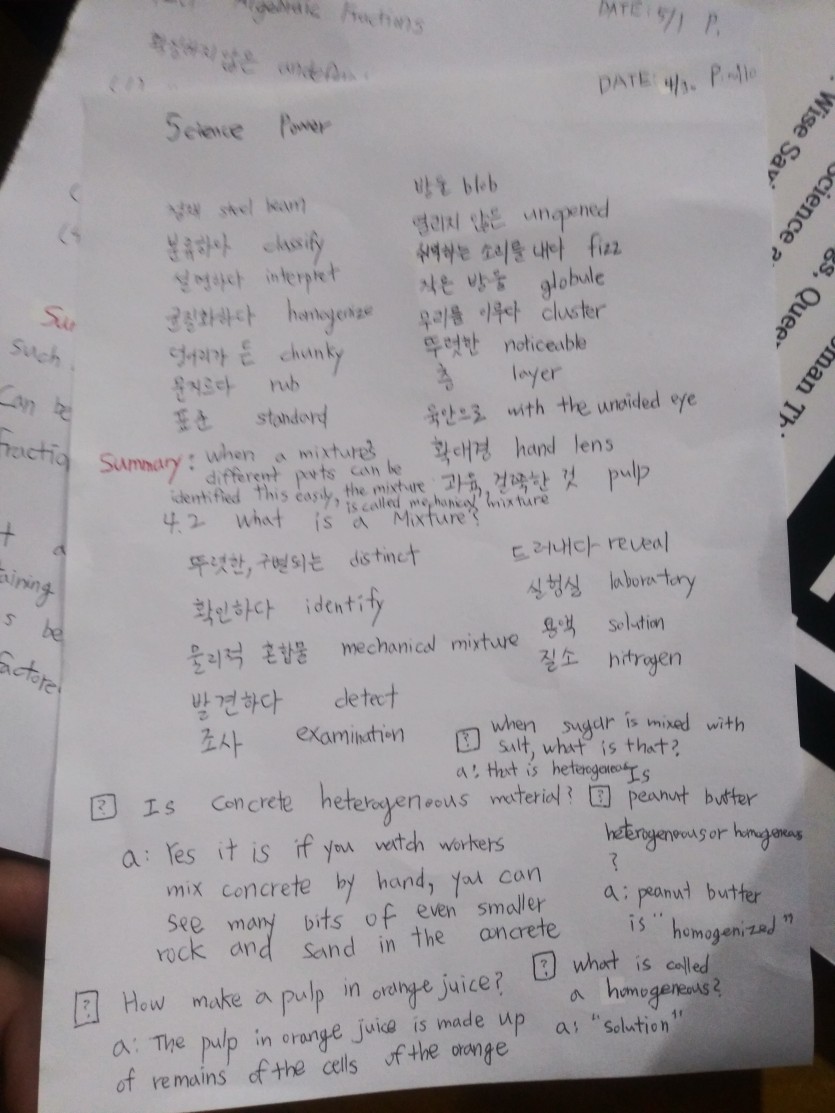 Algebraic Fractions
DATE: 5/1 P.
확정하지 않은
DATE: 4/30 P.
Science Power
방울 blob
steel beam
열리지 않은 unopened
분류하다 classify
쉬익하는 소리를 내다 fizz
설명하다 interpret
작은 방울 globule
균질화하다 homogenize
무리를 이루다 cluster
덩어리가 든 chunky
뚜렷한 noticeable
문지르다 rub
층 layer
표준 standard
육안으로 with the unaided eye
확대경 hand lens
과육, 걸쭉한 것 pulp
Summary: when a mixture's
different parts can be
identified this easily, the mixture
is called mechanical mixture
4.2 What is a Mixture?
뚜렷한, 구별되는 distinct
드러내다 reveal
확인하다 identify
실험실 laboratory
물리적 혼합물 mechanical mixture
용액 solution
발견하다 detect
질소 nitrogen
조사 examination
? when sugar is mixed with
salt, what is that?
a: that is heterogeneous
? Is concrete heterogeneous material?
a: Yes it is if you watch workers
mix concrete by hand, you can
see many bits of even smaller
rock and sand in the concrete
? Is peanut butter
heterogeneous or homogeneous
?
a: peanut butter
is "homogenized"
? How make a pulp in orange juice?
a: The pulp in orange juice is made up
of remains of the cells of the orange
? what is called
a homogeneous?
a: "solution"
such
Can be
Fractio
t a
aining
s be
factore
Wise Sa
Science a
gs, Quee
oman Th